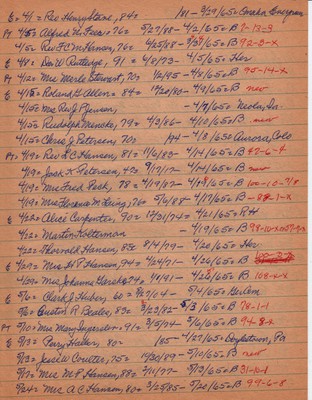 E 4/1= Rev Henry Stroe, 84= /81 - 3/29/65= Omaha Evergreen
Pt 4/5= Alfred N. 76= 5/27/88 - 4/2/65=B 7-13-3
4/5= Rev F.C.M. Hansen, 76= 4/25/88 - 4/3/65=B 92-3-X
E 4/8= Don W Rutledge, 91 = 4/8/73 - 4/5/65= Her
Pt 4/12= Mrs Merle Stewart, 70= 1/2/95 - 4/8/65=B 95-14-X
E 4/15= Roland G Allen= 84= 12/20/80 - 4/8/65=B new
4/15= Mrs Ray J Jensen, - 4/9/65= Neola, Ia.
4/15= Rudolph Mencke, 79= 4/3/86 - 4/10/65=B new
4/15= Chris J Petersen, 70= - 4/8/65= Aurora, Colo
Pt 4/19= Rev L C Hansen, 81= 11/6/83 - 4/14/65=B 87-6-4
4/19= Jack K Petersen, 47= 9/17/17 - 4/14/65=B new
4/19= Mrs Fred Pash, 78= 4/19/87 - 4/18/65=B 100-10-7/8
4/19= Mrs Florence M King, 76= 5/6/88 - 4/17/65=B 88-1-X
E 4/22= Alice Carpenter, 90= 12/31/74 = 4/21/65= P.H
4/12= Martin Kolterman 4/19/65=B
4/22= Thorvald Hansen, 85= 8/4/79 - 4/20/65= Her
E 4/27= Mrs H P Hansen, 94= 4/24/71 - 4/26/65=B
4/29= Mrs Johanna 74= 4/8/91 - 4/26/65=B 108-X-X
E 5/6= Clark J Huber, 60= 9/ /04 - 5/4/65=
5/6= Custin R Beales, 83= 3/23/82 5/3/65=B 78-1-1
Pt 5/10= Mrs Mary 91= 3/5/74 - 5/6/65=B 94-8-X
E 5/13= Harry Hallar, 80= /85 - 4/27/65= Doylestown, Pa
5/13= Jesse W Coulter, 75= 1/30/89 - 5/10/65=B new
5/17= Mrs M P Hansen, 88= 2/11/77 - 5/13/65=B 31-10-1
5/24= Mrs A C Hansen, 80= 3/25/85 - 5/20/65=B 99-6-8